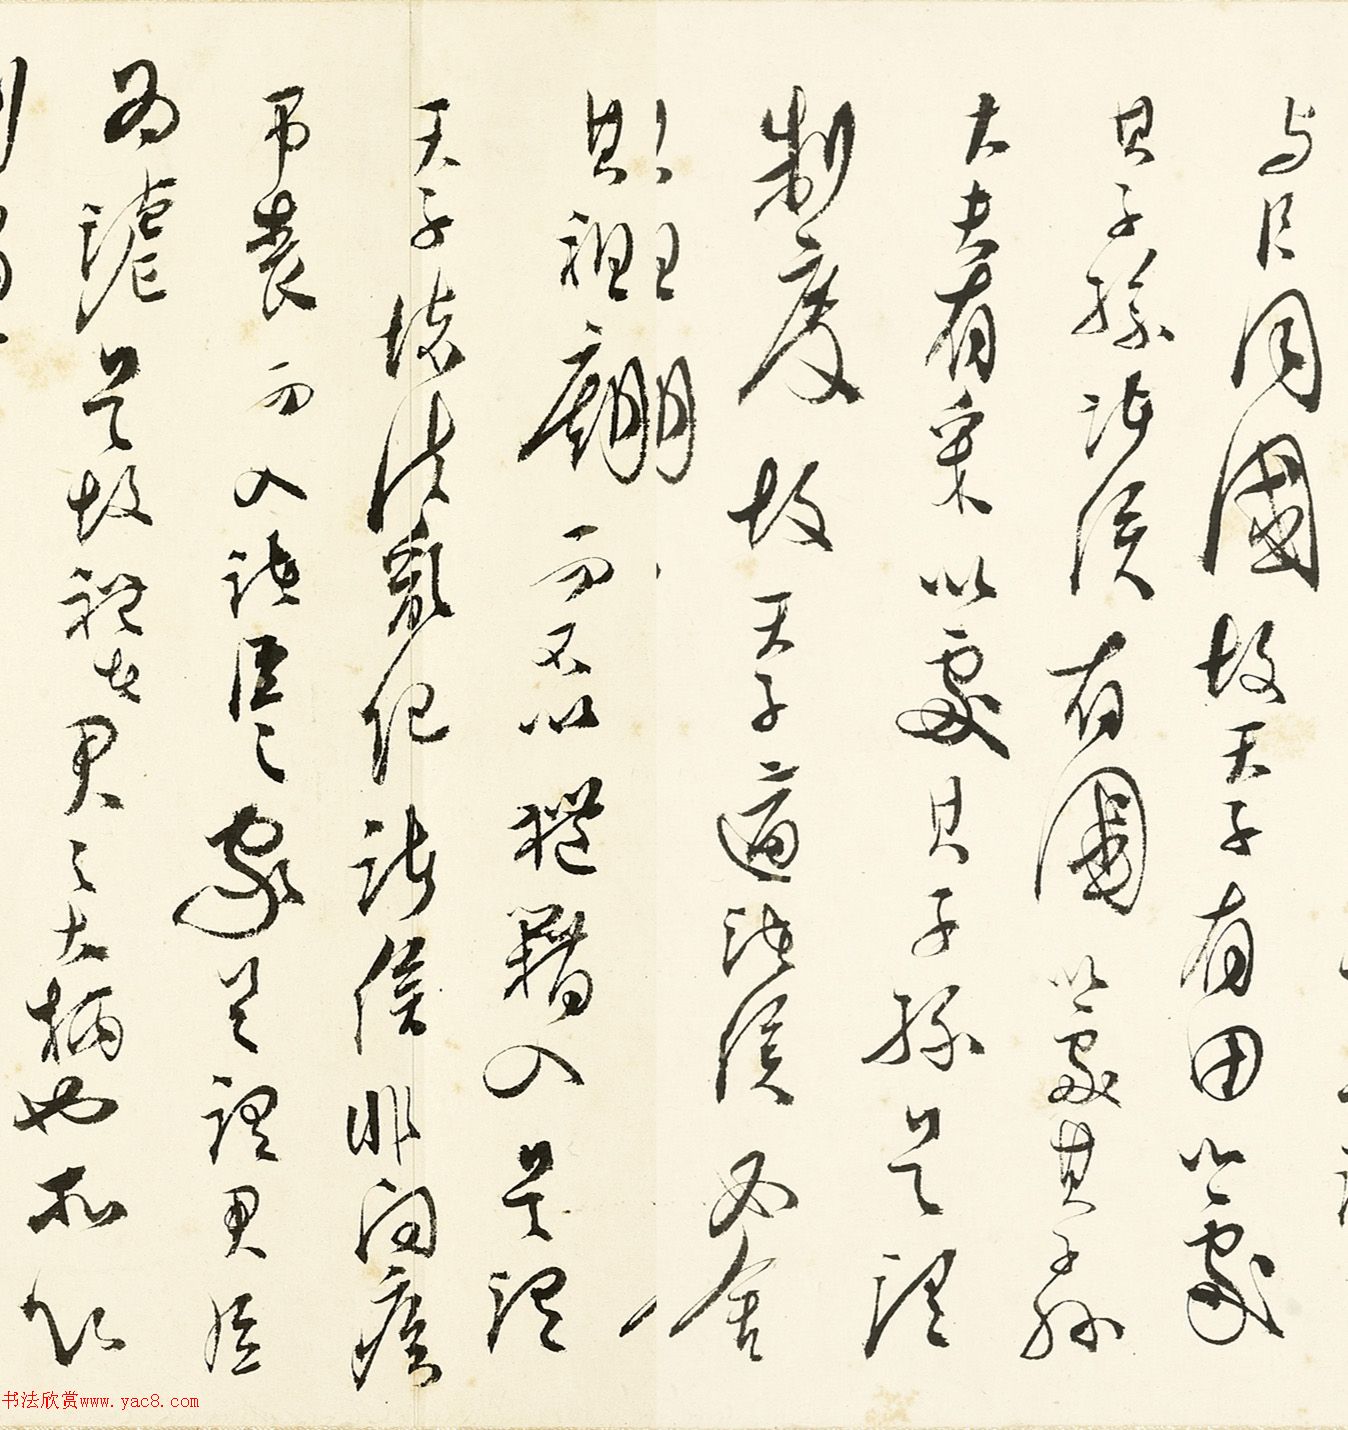 与臣同國故天子有田以處
其子孫諸侯有國以處其子孫
大夫有采以處其子孫是謂
制度故天子適諸侯必舍
其祖廟而不以禮籍入是謂
天子壞法亂紀諸侯非問疾
弔喪而入諸臣之家是謂君臣
為謔是故禮者君之大柄也所以
书法欣赏www.yac8.com